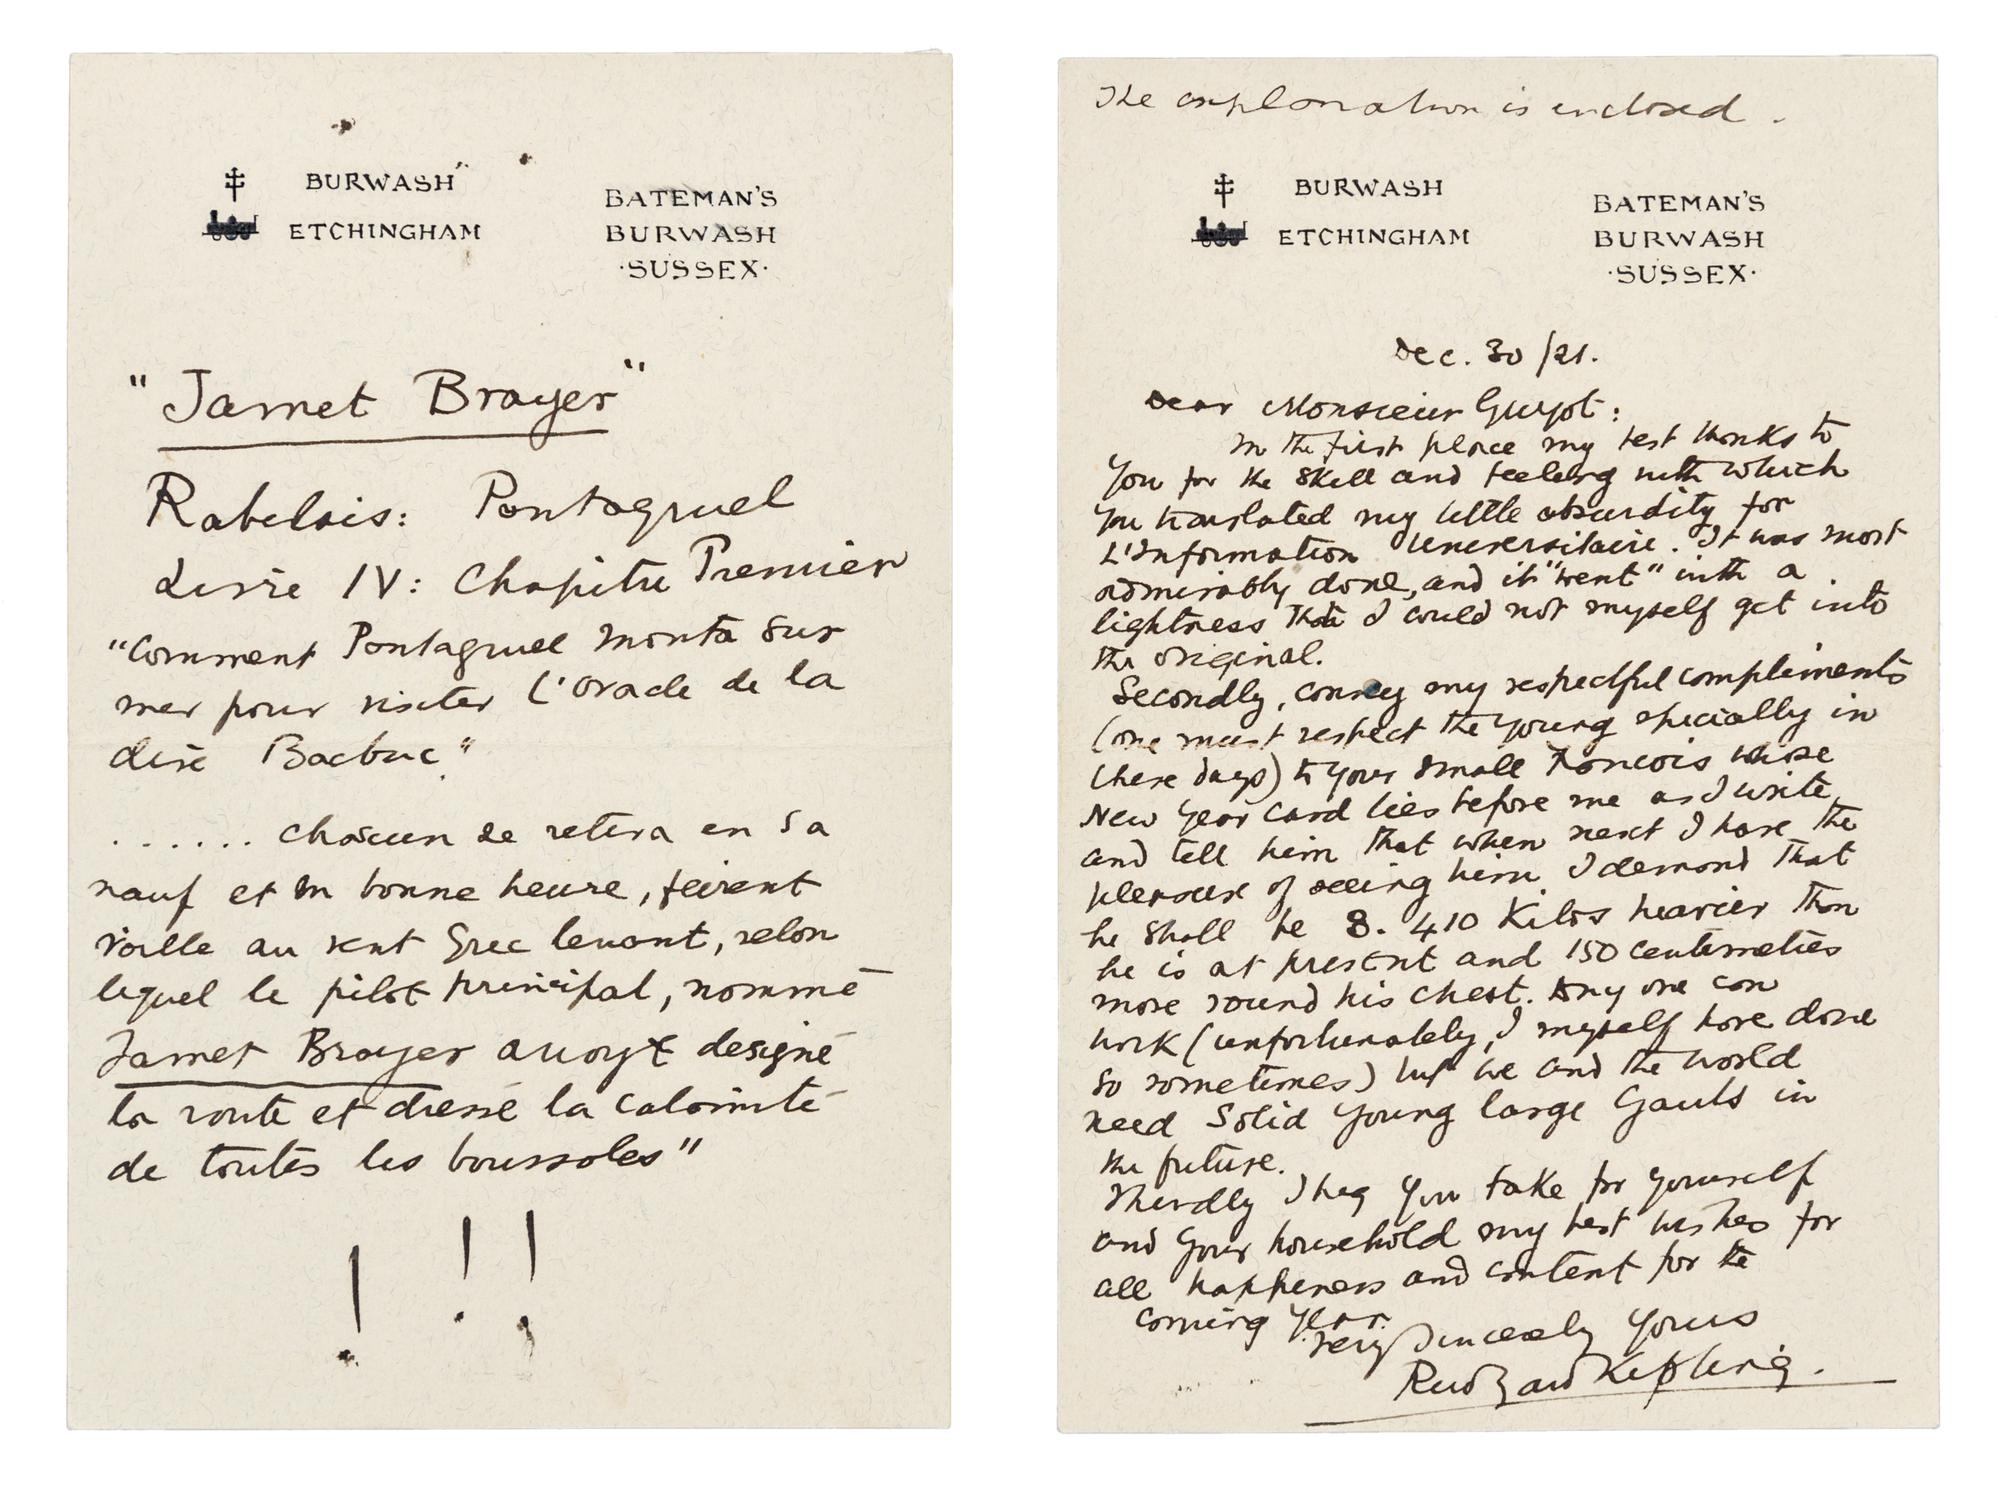 BURWASH
ETCHINGHAM
BATEMAN'S
BURWASH
·SUSSEX·
"Jamet Brayer"
Rabelais: Pantagruel
Livre IV: Chapitre Premier
"Comment Pantagruel monta sur
mer pour visiter l'oracle de la
dive Bacbuc"
...... chascun se retira en sa
nauf et en bonne heure, feirent
voille au vent Grec levant, selon
lequel le pilot principal, nommé
Jamet Brayer avoyt designé
la route et dressé la calamité
de toutes les boussoles"
! ! !
The explanation is enclosed.
BURWASH
ETCHINGHAM
BATEMAN'S
BURWASH
·SUSSEX·
Dec. 30/21.
Dear Monsieur Guyot:
In the first place my best thanks to
you for the skill and feeling with which
you translated my little absurdity for
L'Information Universitaire. It was most
admirably done, and it "went" with a
lightness that I could not myself get into
the original.
Secondly, convey my respectful compliments
(one must respect the young specially in
these days) to your small Francois whose
New Year card lies before me as I write,
and tell him that when next I have the
pleasure of seeing him I demand that
he shall be 8.410 Kilos heavier than
he is at present and 150 centimetres
more round his chest. Any one can
work (unfortunately, I myself have done
so sometimes) but we and the world
need solid young large Gauls in
the future.
Thirdly I beg you take for yourself
and your household my best wishes for
all happiness and content for the
coming year.
Very sincerely yours
Rudyard Kipling.